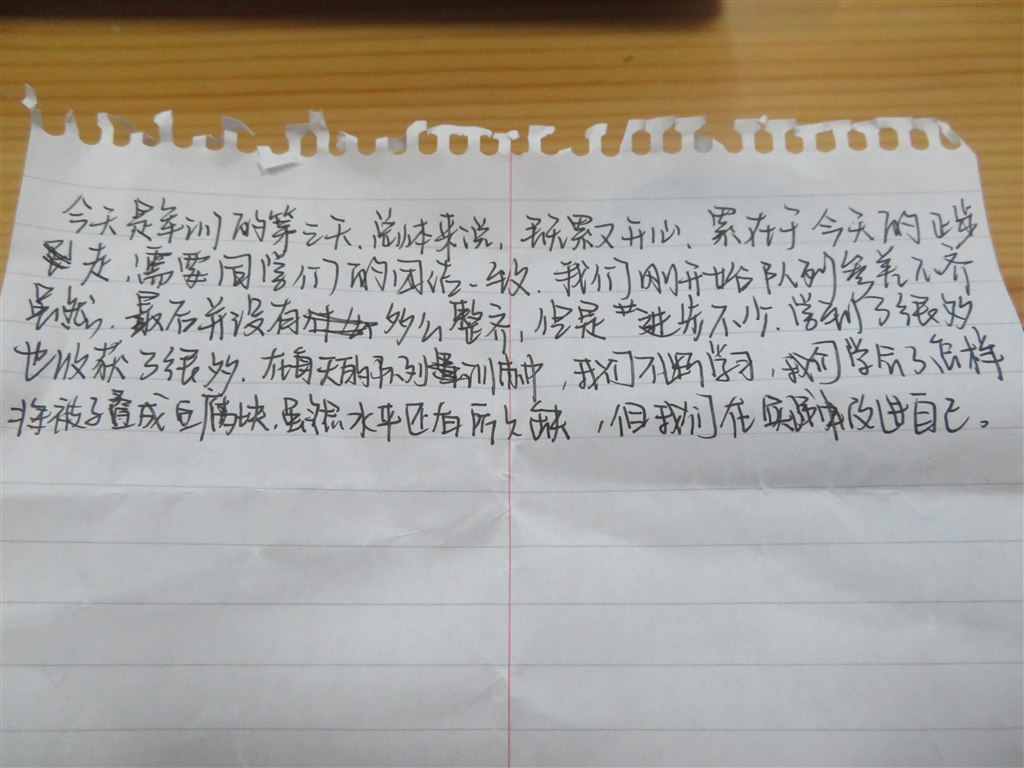 今天是军训的第三天.总体来说,既累又开心.累在于今天的正步
走,需要同学们的团结一致.我们刚开始队列参差不齐
虽然,最后并没有多么整齐,但是进步不少.学到了很多
也收获了很多.在每天的队列训练中,我们不断学习,我们学会了怎样
将被子叠成豆腐块.虽然水平还有所欠缺,但我们在实践中改进自己。